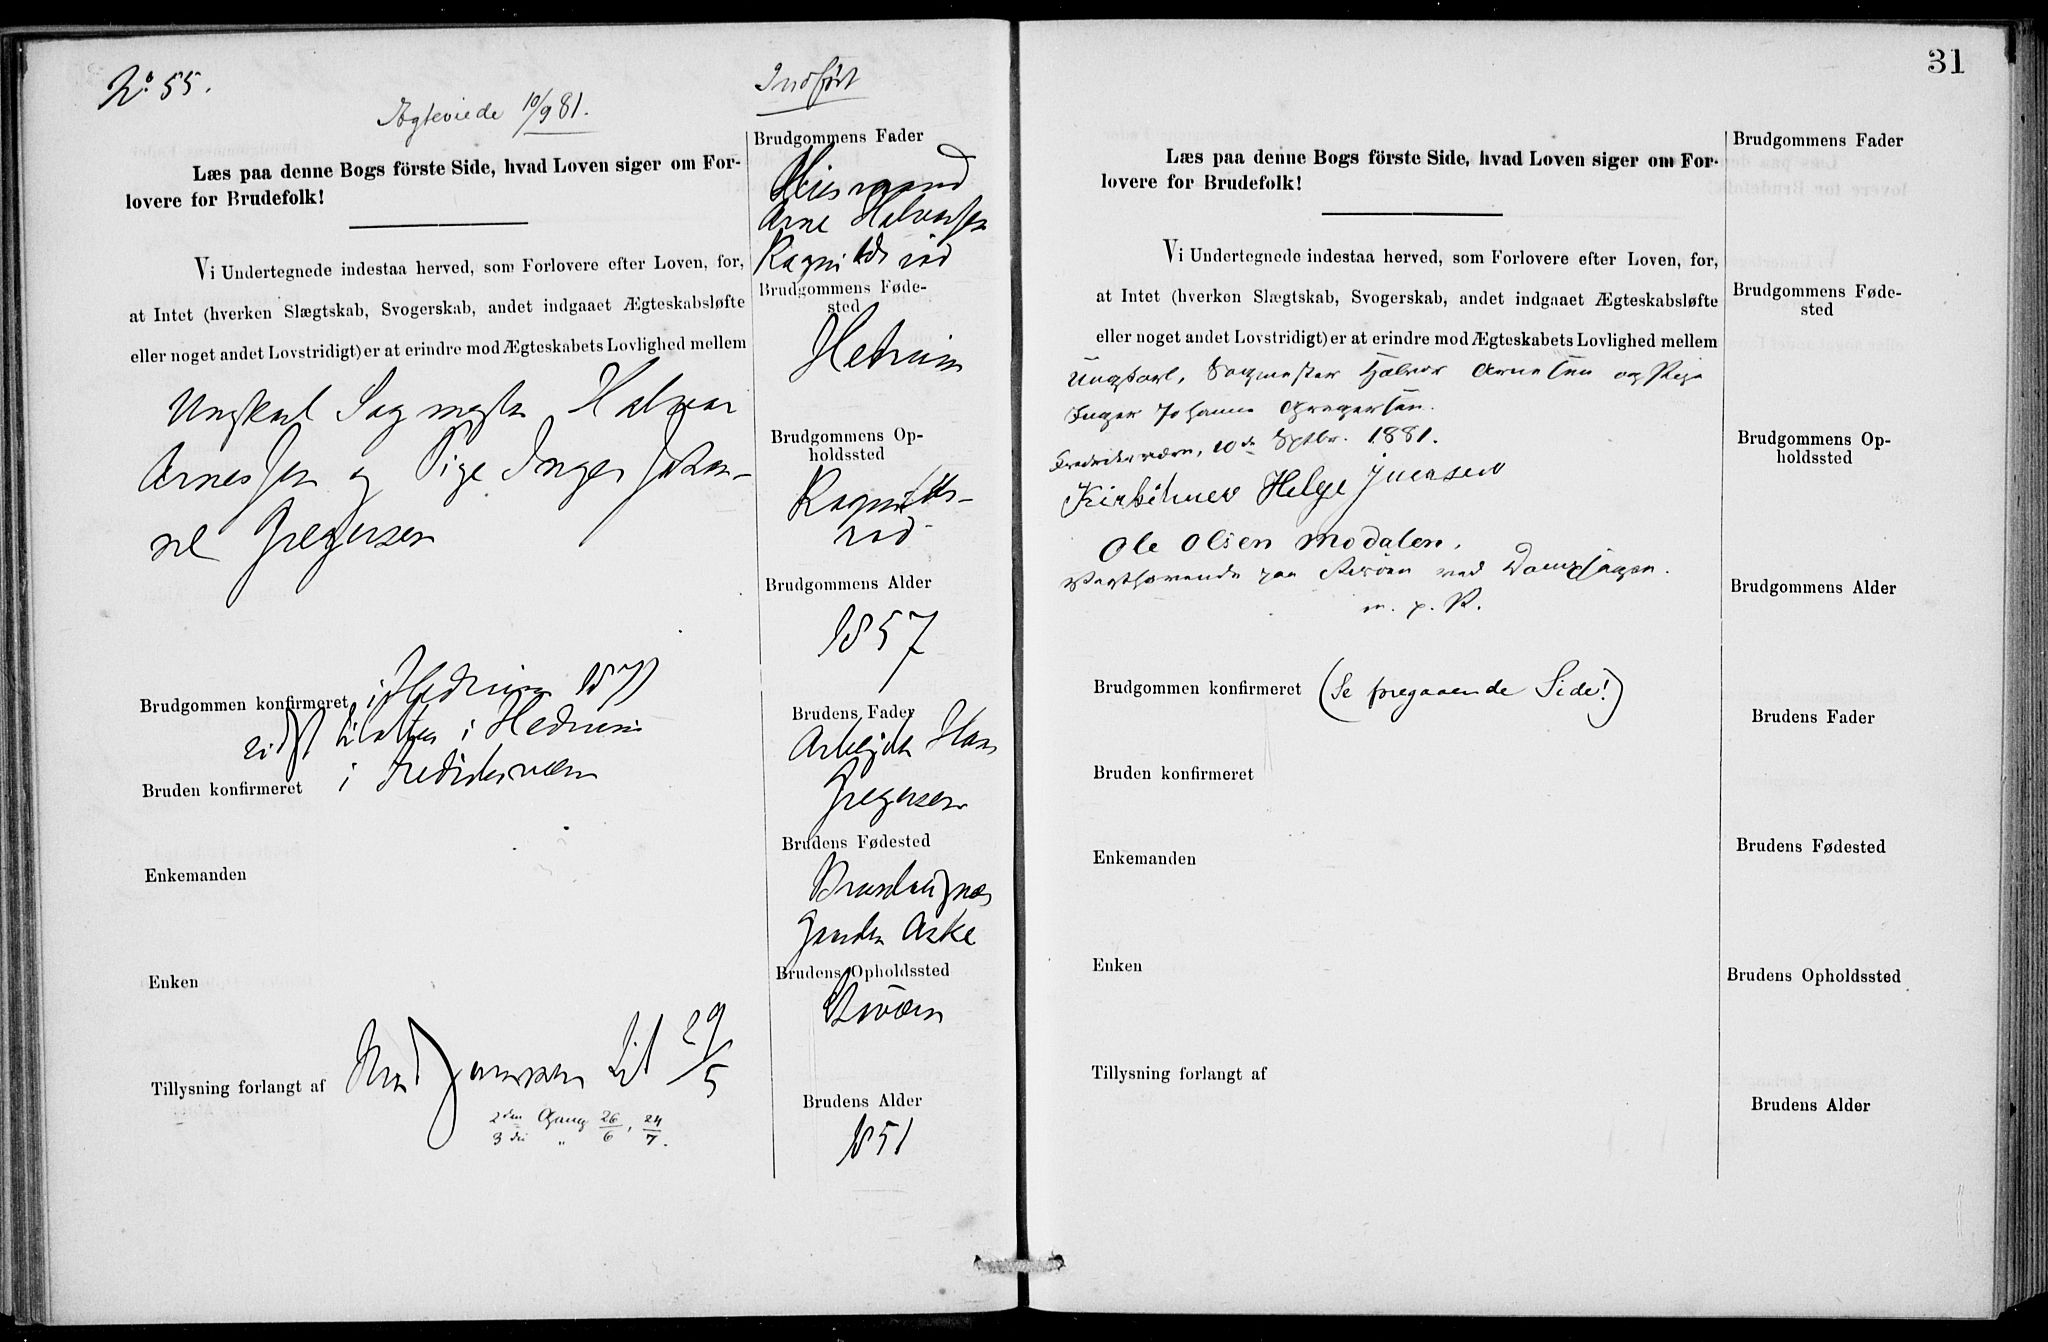 No 55.
Indført
Ægteviede 10/9 81.
Læs paa denne Bogs förste Side, hvad Loven siger om For-
lovere for Brudefolk!
Vi Undertegnede indestaa herved, som Forlovere efter Loven, for,
at Intet (hverken Slægtskab, Svogerskab, andet indgaaet Ægteskabsløfte
eller noget andet Lovstridigt) er at erindre mod Ægteskabets Lovlighed mellem
Ungkarl Sagmester Halvor
Arnessen og Pige Inger Johan-
ne Gregersen
Brudgommen konfirmeret i Hedrum
i Hedrum
Bruden konfirmeret i Fredriksværn
Enkemanden
Enken
Tillysning forlangt af 29/5
2den Gang 26/6, 24/7.
3die "
Brudgommens Fader
Arne Halvorsen
Ragnildsrød
Brudgommens Føde-
sted
Hedrum
Brudgommens Op-
holdssted
Ragnilds-
rød
Brudgommens Alder
1857
Brudens Fader
Arbejder Hans
Gregersen
Brudens Fødested
Aske
Brudens Opholdssted
Brudens Alder
1851
31
Læs paa denne Bogs förste Side, hvad Loven siger om For-
lovere for Brudefolk!
Vi Undertegnede indestaa herved, som Forlovere efter Loven, for,
at Intet (hverken Slægtskab, Svogerskab, andet indgaaet Ægteskabsløfte
eller noget andet Lovstridigt) er at erindre mod Ægteskabets Lovlighed mellem
Ungkarl, Sagmester Halvor Arnesen og Pige
Inger Johanne Gregersen.
Fredriksværn, 10de Septbr. 1881.
Kirketjener Helge Iversen
Ole Olsen Modalen,
m. p. P.
Brudgommen konfirmeret (Se foregaaende Side!)
Bruden konfirmeret
Enkemanden
Enken
Tillysning forlangt af
Brudgommens Fader
Brudgommens Føde-
sted
Brudgommens Op-
holdssted
Brudgommens Alder
Brudens Fader
Brudens Fødested
Brudens Opholdssted
Brudens Alder